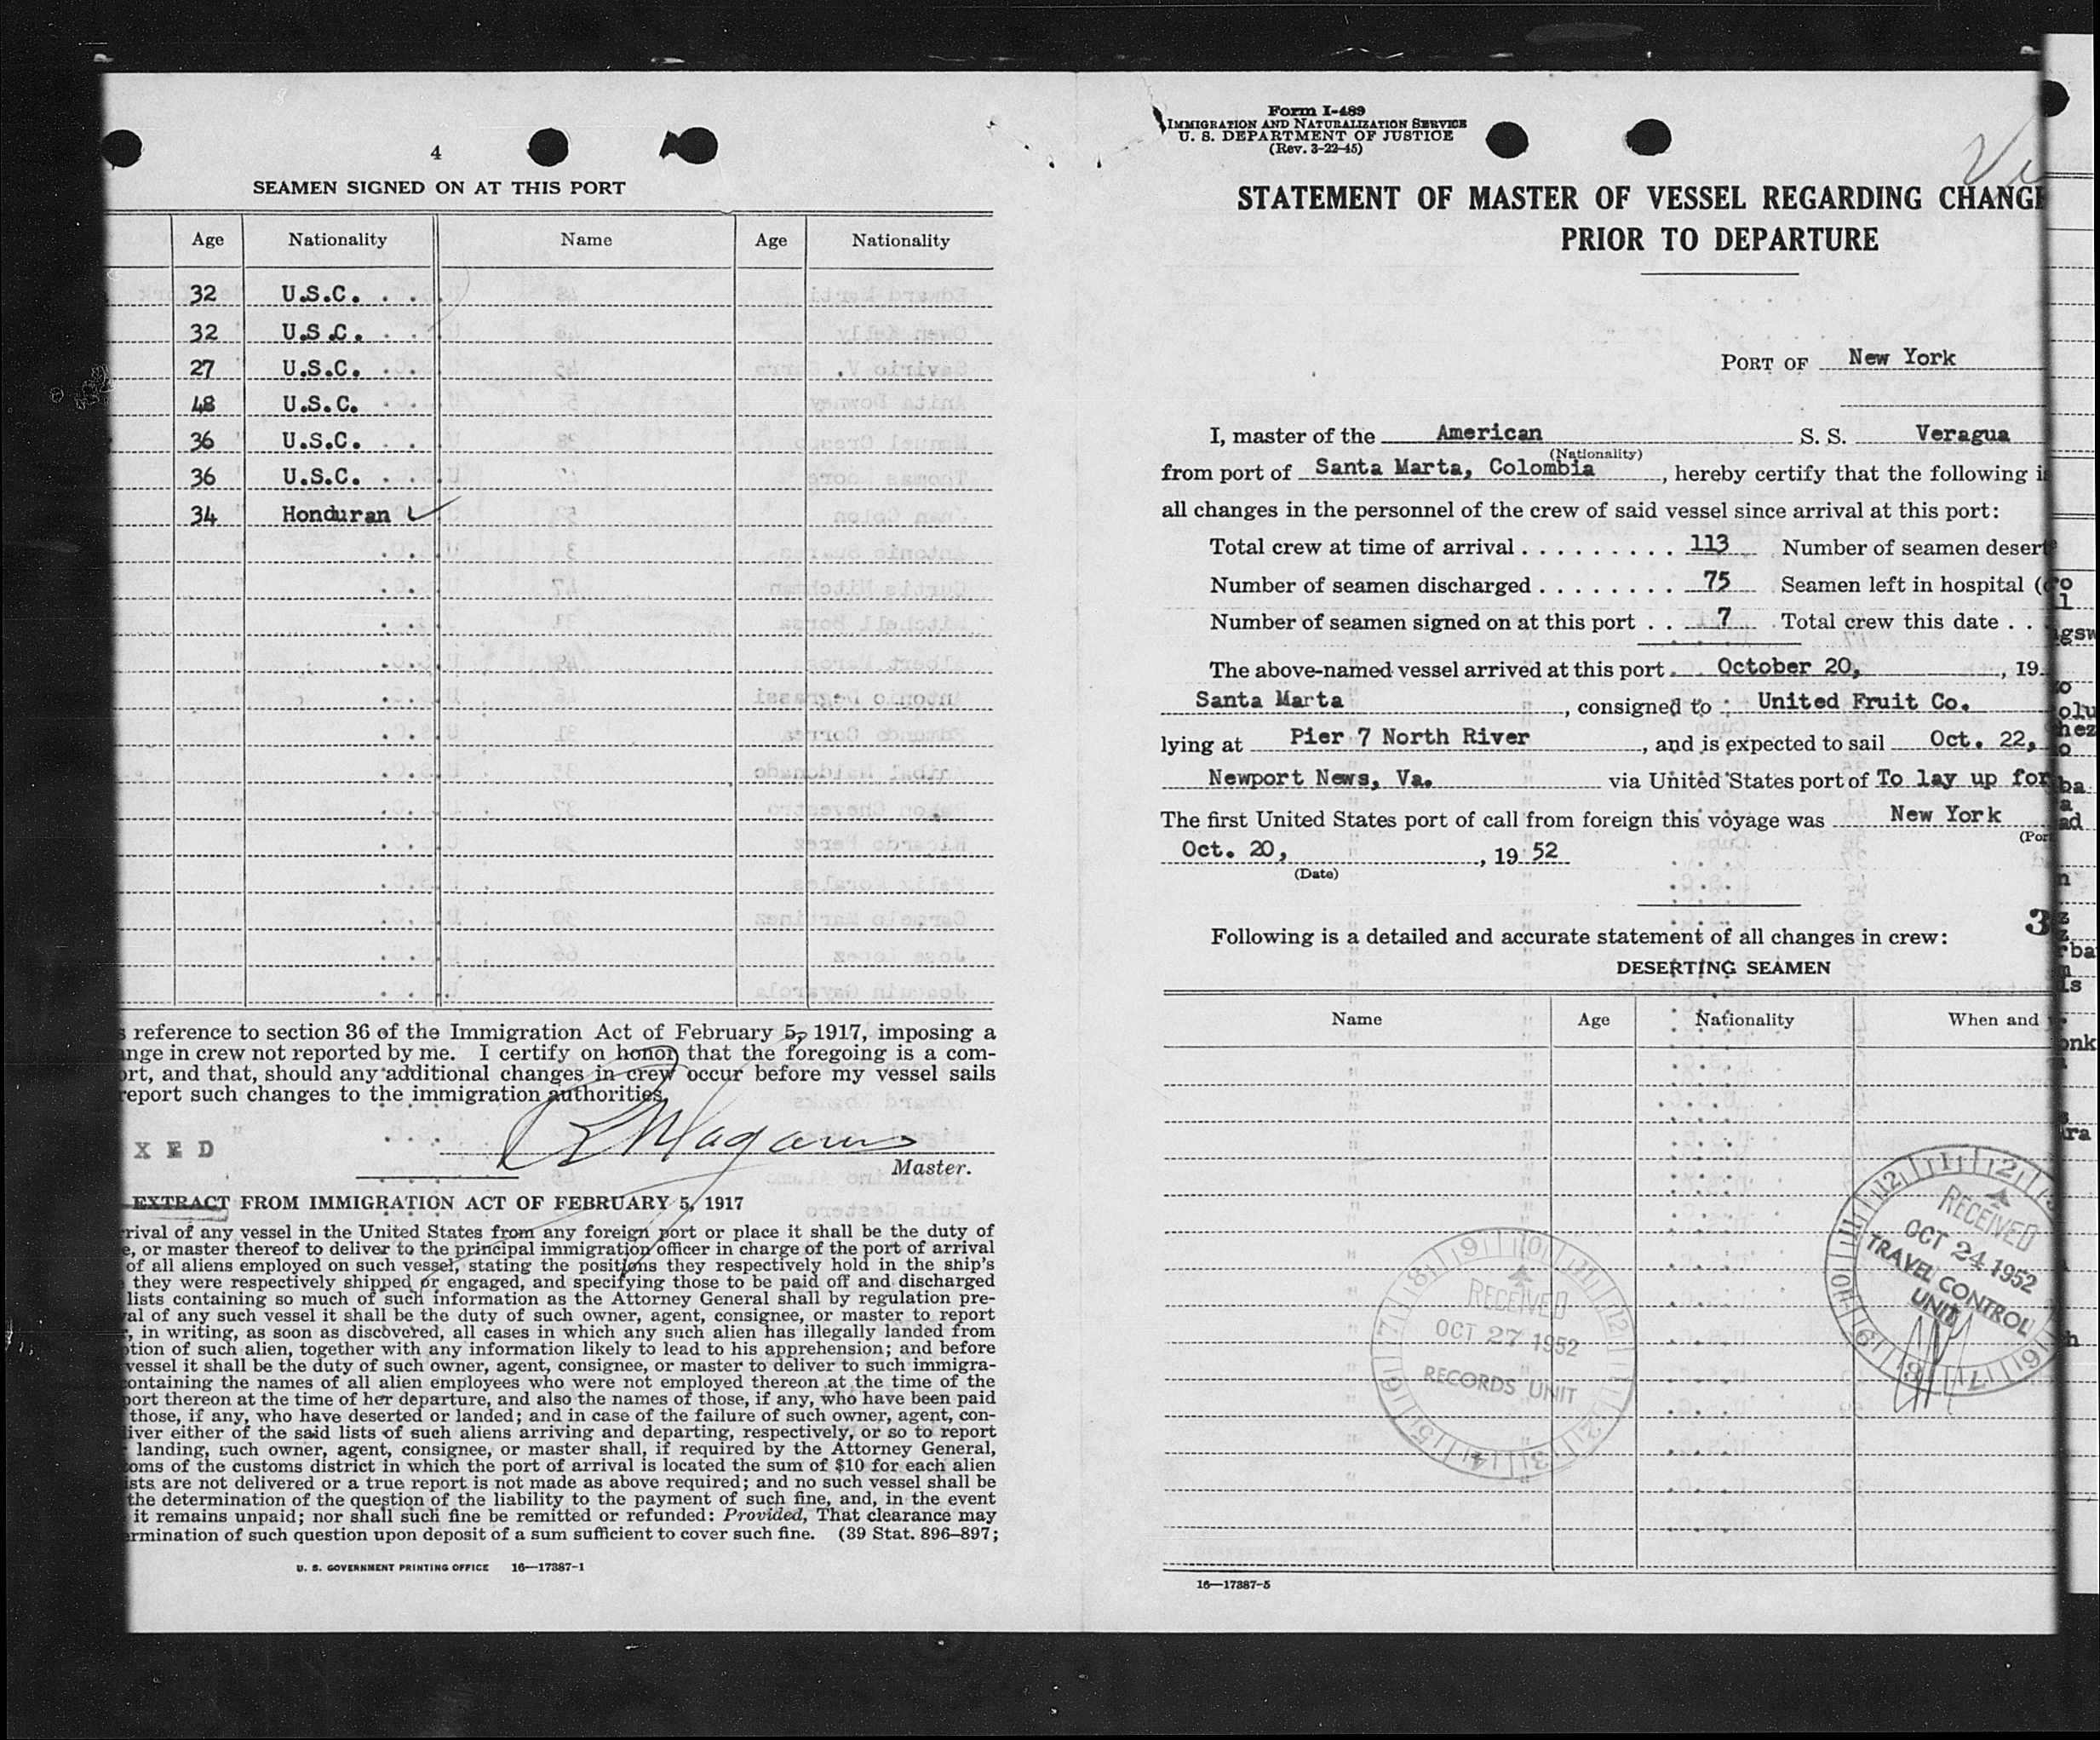 4
SEAMEN SIGNED ON AT THIS PORT
Age Nationality Name Age Nationality
32 U.S.C.
32 U.S.C.
27 U.S.C.
48 U.S.C.
36 U.S.C.
36 U.S.C.
34 Honduran
reference to section 36 of the Immigration Act of February 5, 1917, imposing a
nge in crew not reported by me. I certify on honor that the foregoing is a com-
ort, and that, should any additional changes in crew occur before my vessel sails
report such changes to the immigration authorities.
X E D
Master.
EXTRACT FROM IMMIGRATION ACT OF FEBRUARY 5, 1917
rival of any vessel in the United States from any foreign port or place it shall be the duty of
e, or master thereof to deliver to the principal immigration officer in charge of the port of arrival
of all aliens employed on such vessel, stating the positions they respectively hold in the ship's
they were respectively shipped or engaged, and specifying those to be paid off and discharged
lists containing so much of such information as the Attorney General shall by regulation pre-
al of any such vessel it shall be the duty of such owner, agent, consignee, or master to report
, in writing, as soon as discovered, all cases in which any such alien has illegally landed from
tion of such alien, together with any information likely to lead to his apprehension; and before
vessel it shall be the duty of such owner, agent, consignee, or master to deliver to such immigra-
ontaining the names of all alien employees who were not employed thereon at the time of the
port thereon at the time of her departure, and also the names of those, if any, who have been paid
those, if any, who have deserted or landed; and in case of the failure of such owner, agent, con-
iver either of the said lists of such aliens arriving and departing, respectively, or so to report
landing, such owner, agent, consignee, or master shall, if required by the Attorney General,
oms of the customs district in which the port of arrival is located the sum of $10 for each alien
ists are not delivered or a true report is not made as above required; and no such vessel shall be
the determination of the question of the liability to the payment of such fine, and, in the event
it remains unpaid; nor shall such fine be remitted or refunded: Provided, That clearance may
rmination of such question upon deposit of a sum sufficient to cover such fine. (39 Stat. 896–897;
U. S. GOVERNMENT PRINTING OFFICE 16—17387-1
Form I-489
IMMIGRATION AND NATURALIZATION SERVICE
U. S. DEPARTMENT OF JUSTICE
(Rev. 3-22-45)
STATEMENT OF MASTER OF VESSEL REGARDING CHANGE
PRIOR TO DEPARTURE
PORT OF New York
I, master of the American S. S. Veragua
(Nationality)
from port of Santa Marta, Colombia, hereby certify that the following is
all changes in the personnel of the crew of said vessel since arrival at this port:
Total crew at time of arrival . . . . . . . . . 113 Number of seamen desert
Number of seamen discharged . . . . . . . . 75 Seamen left in hospital (
Number of seamen signed on at this port . . 7 Total crew this date . .
The above-named vessel arrived at this port October 20, , 19
Santa Marta , consigned to United Fruit Co.
lying at Pier 7 North River , and is expected to sail Oct. 22,
Newport News, Va. via United States port of To lay up for
The first United States port of call from foreign this voyage was New York
(Por
Oct. 20, , 19 52
(Date)
Following is a detailed and accurate statement of all changes in crew:
3
DESERTING SEAMEN
Name Age Nationality When and
RECEIVED
OCT 24 1952
TRAVEL CONTROL
UNIT
RECEIVED
OCT 27 1952
RECORDS UNIT
16—17387-5